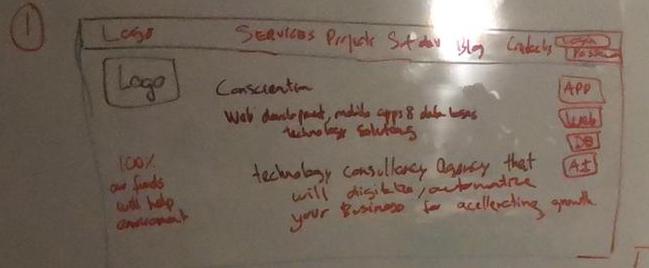 1
Logo Services Projects Sutdev Blog Contacts Login
Logo
Conscientia
Web development, mobile apps & data bases
technology solutions
APP
Web
DB
AI
100%
our funds
will help
enviroment
technology consultancy agency that
will digitalize/automatize
your Business for acellerating growth